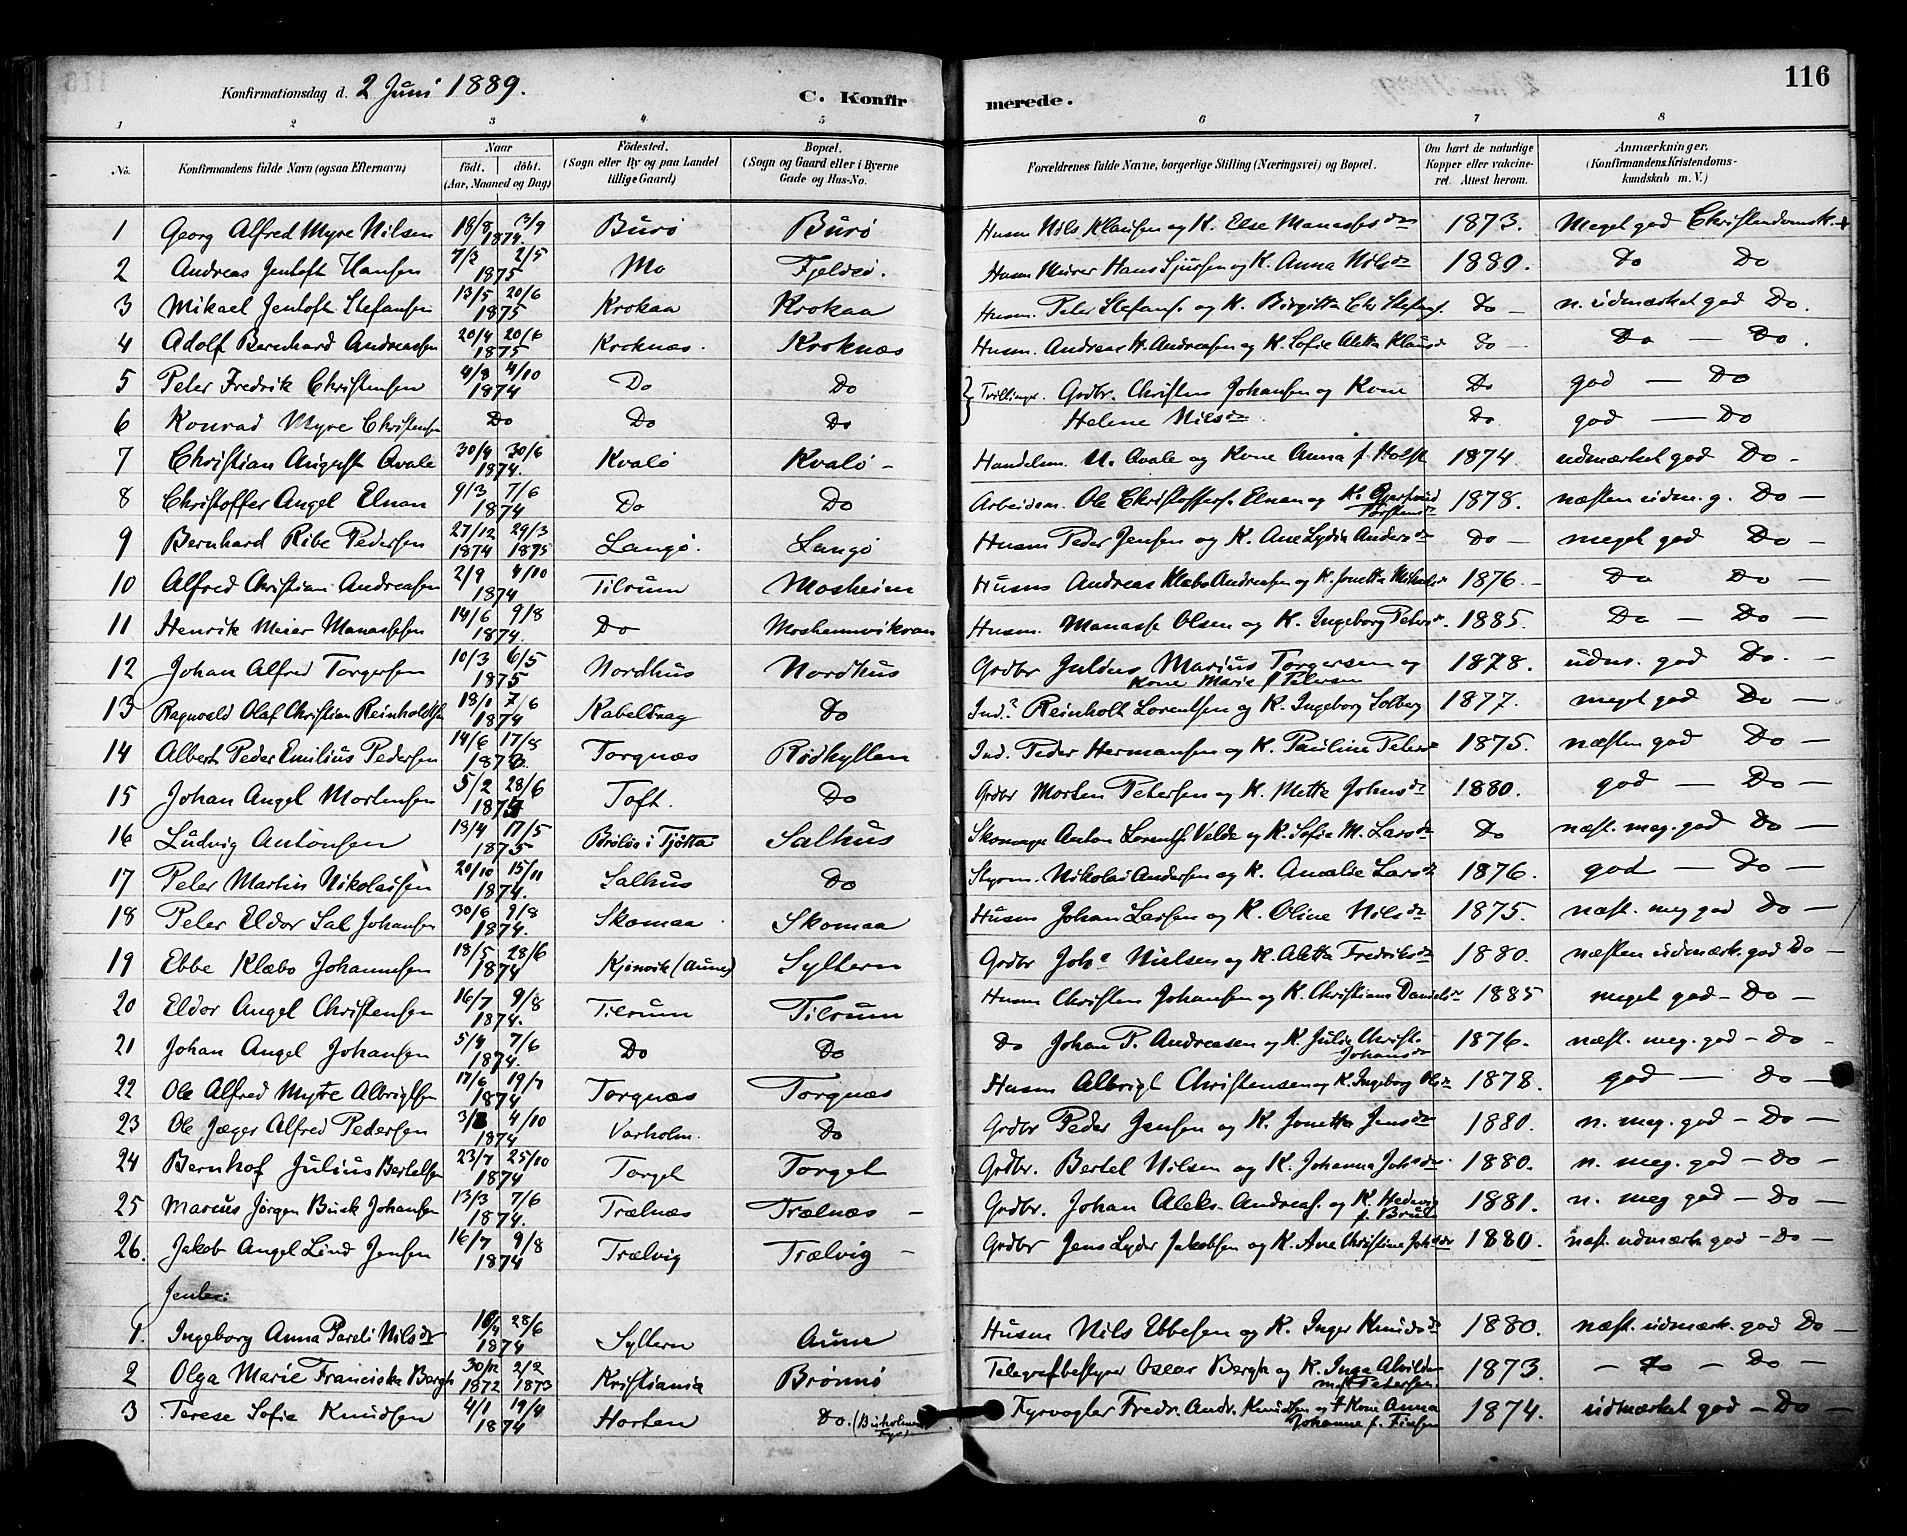 116
Konfirmationsdag d. 2 Juni 1889. C. Konfirmerede.
1 2 3 4 5 6 7 8
No. Konfirmandens fulde Navn (ogsaa Efternavn) Naar født. døbt. (Aar, Maaned og Dag) Födested. (Sogn eller By og paa Landet tillige Gaard) Bopæl. (Sogn og Gaard eller i Byerne Gade og Hus-No. Forældrenes fulde Navne, borgerlige Stilling (Næringsvei) og Bopæl. Om havt de naturlige Kopper eller vakcineret. Attest herom. Anmærkninger, (Konfirmandens Kristendomskundskab m. V.)
1 Georg Alfred Myre Nilsen 18/8 3/9 1874. Burø Burø Husm Nils Klausen og K. Else Manasses dr 1873. Meget god Christendomsk.
2 Andreas Jentoft Hansen 7/3 2/5 1875 Mo Fjeldsø. Husm Murer Hans Sjursen og K. Anna Nilsdr 1880. Do Do
3 Mikael Jentoft Stefansen 13/5 20/6 1875 Krokaa Krokaa Husm. Peter Stefans. og K. Birgitta Chr Stefans. Do n. udmærket god Do.
4 Adolf Bernhard Andreassen 20/4 20/6 1875 Kroknæs. Kroknæs Husm. Andreas H. Andreasen og K. Sofie Aletta Klausd Do Do - Do.
5 Peter Fredrik Christensen 4/8 4/10 1874 Do Do Tvillinger. Grdbr. Christen Johansen og Kone Do god - Do
6 Konrad Myre Christensen Do Do Do Helene Nilsdr. Do. god - Do
7 Christian August Qvale 30/4 30/6 1874. Kvalø Kvalø - Handelsm. N. Qvale og Kone Anna f. Holst 1874. udmærket god Do -
8 Christoffer Angel Elnan 9/3 7/6 1874 Do Do Arbeidsm. Ole Christoffers. Elnan og K. Gjertrud Torstensdr 1878. næsten udm. g. Do -
9 Bernhard Ribe Pedersen 27/12 1874 29/3 1875 Langø. Langø Husm Peder Jensen og K. Ane Lydia Andersdr Do - meget god Do -
10 Alfred Christian Andreasen 2/9 4/10 1874 Tilrum Mosheim Husm Andreas Klæbo Andreasen og K. Jonetta Mikalsdr 1876. - Do Do -
11 Henrik Meier Manassesen 14/6 9/8 1874. Do Mosheimvikvan Husm. Manasse Olsen og K. Ingeborg Petersdr. 1885. Do - Do -
12 Johan Alfred Torgersen 10/3 6/5 1875 Nordhus Nordhus Grdbr Julius Marius Torgersen og Kone Marie f Petersen 1878. udm. god Do. -
13 Ragnvald Olaf Christian Reinholdtsen 18/1 7/6 1874 Kabelvaag Do Ind. Reinholt Lorentsen og K. Ingeborg Solberg 1877. meget god Do -
14 Albert Peder Emilius Pedersen 14/6 17/8 1873. Torgnæs Rødhyllen Ind. Peder Hermansen og K. Pauline Petersdr 1875. næsten god Do -
15 Johan Angel Mortensen 5/2 28/6 1874 Toft. Do Grdbr Morten Petersen og K. Metta Johnsdr 1880. god - Do -
16 Ludvig Antonsen 13/4 17/5 1875 i Tjøtta Salhus Skomager Anton Lorents. Velde og K. Sofie M. Larsdr Do næst. meg. god Do -
17 Peter Martin Nikolaisen 20/10 15/11 1874. Salhus Do Styrm. Nikolai Andersen og K. Amalie Larsdr 1876. god - Do -
18 Peter Eldor Sal Johansen 30/6 9/8 1874. Skomaa Skomaa Husm Johan Larsen og K. Oline Nilsdr 1875. næst. meg god Do -
19 Ebbe Klæbo Johannesen 18/5 28/6 1874 Kjønvik (Aune) Syltern Grdbr Johs Nielsen og K. Aletta Fredriksdr 1880. næsten udmærk. god Do -
20 Eldor Angel Christensen 16/7 9/8 1874. Tilrum Tilrum Husm Christen Johansen og K. Christians Danielsdr 1885 meget god - Do -
21 Johan Angel Johansen 5/4 7/6 1874. Do Do Do Johan P. Andreasen og K. Julie Christ. Johansdr 1876. næst. meg. god - Do -
22 Ole Alfred Myre Albrigtsen 17/6 19/7 1874 Torgnæs Torgnæs Husm Albrigt Christensen og K. Ingeborg Olsdr 1878. god - Do -
23 Ole Jæger Alfred Pedersen 3/8 4/10 1874 Varholm. Do Grdbr Peder Jensen og K. Jonetta Jensdr 1880. n. meg. god - Do -
24 Bernhof Julius Bertelsen 23/7 25/10 1874 Torget Torget Grdbr. Bertel Nilsen og K. Johanna Johsdr. 1880. n. meg. god - Do -
25 Marcus Jørgen Busk Johansen 13/3 7/6 1874. Trælnæs Trælnæs - Grdbr. Johan Aleks. Andreas. og K. Hedevig f. 1881. n. meg god - Do -
26. Jakob Angel Lind Jensen 16/7 9/8 1874 Trælvig Trælvig - Grdbr Jens Lyder Jakobsen og K. Ane Christine Johsdr 1880. næst. udmærk god - Do -
Jenter:
1. Ingeborg Anna Pareli Nilsdr 16/4 28/6 1874 Syltern Aune Husm Nils Ebbesen og K. Inger Knudsdr 1880. næst. udmærk. god Do -
2 Olga Marie Franciska Bergh 30/12 1872 2/2 1873 Kristiania Brønnø Telegrafbestyrer Oscar Bergh og K. Inga Alvilde Petersen. 1873. - Do - Do -
3 Terese Sofie Knudsen 4/1 19/4 1874 Horten Do. Fyrvogter Fredr. Andr. Knudsen og † Kone Anna Johanne f. 1874. udmærket god - Do -